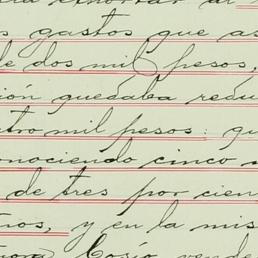 gastos que as
de dos mil pesos,
ión quedaba redu
tro mil pesos: qu
onociendo cinco
de tres por cien
nos, y en la mis
Cosío vende